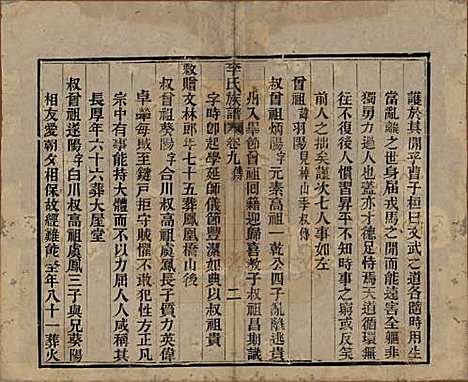 護於其間乎晋子桓曰文武之道各隨時用生
當亂離之世身居戎馬之間而能遠害全軀非
獨勇力過人也蓋亦才德足恃焉天道循環無
往不復後人慣習昇平不信時事之窮或反笑
前人之拙矣謹次七人事如左
曾祖諱羽陽見神山季叔傳
叔曾祖炳陽字元素高祖一乾公四子亂離逃貴
州入畢節曾祖回籍迎歸喜教子叔祖昌期議
李氏族譜 卷九傳 二
敕贈文林郎年七十五葬鳳凰橋山後
字時卽起學延師儀節豐潔如成人叔祖貴
叔曾祖葵陽字合川叔高祖虞鳳長子貌英偉
卓犖每賊至輒鍵戸拒守賊懼不敢犯性方剛
宗中有事能持大體而不以才加人人咸稱其
長厚年六十六葬大屋堂
叔曾祖遂陽字白川叔高祖虞鳳三子與兄葵陽
相友愛朝夕相保故經難能全年八十一葬火